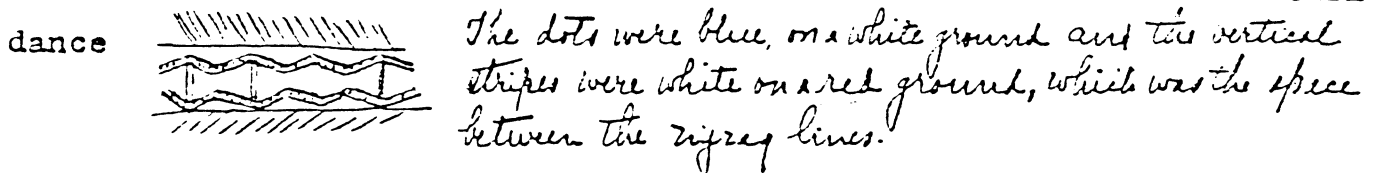 dance
The dots were blue, on a white ground and the vertical
stripes were white on a red ground, which was the space
between the zigzag lines.